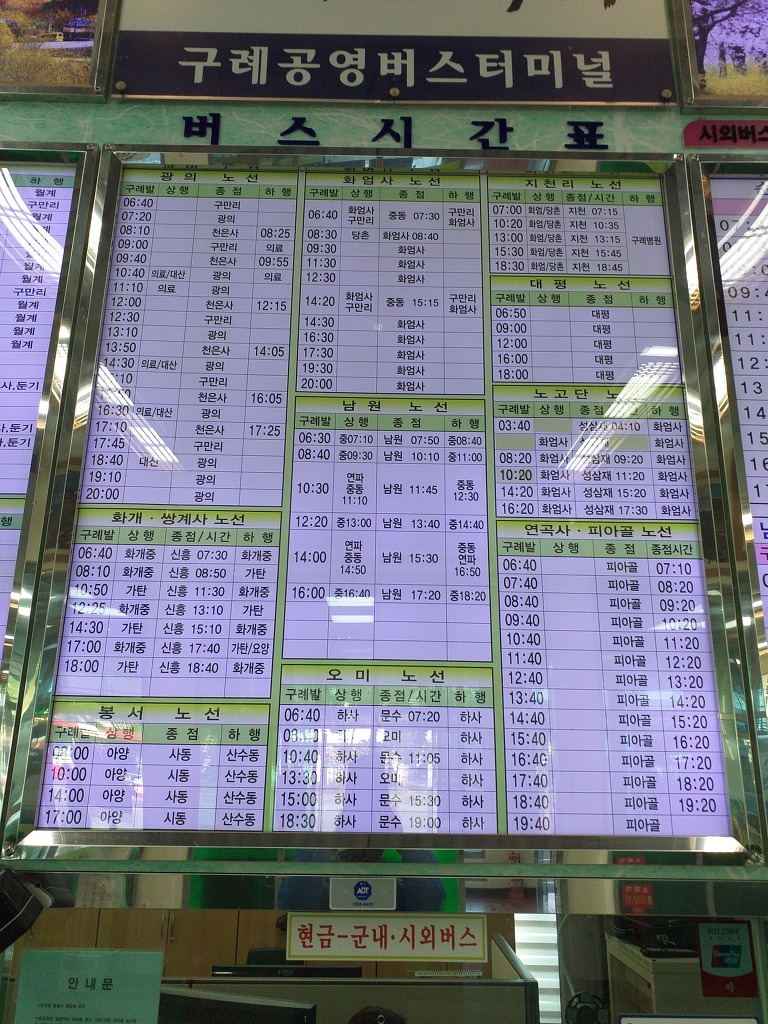 구례공영버스터미널
버스시간표
시외버스
하 행
월계
구만리
월계
월계
월계
월계
월계
구만리
월계
월계
월계
월계
광의 노선
구례발 상행 종점 하행
06:40 구만리
07:20 광의
08:10 천은사 08:25
09:00 구만리 의료
09:40 천은사 09:55
10:40 의료/대산 광의 의료
11:10 의료 광의
12:00 천은사 12:15
12:30 구만리
13:10 광의
13:50 천은사 14:05
14:30 의료/대산 광의
구만리
천은사 16:05
16:30 의료/대산 광의
17:10 천은사 17:25
17:45 구만리
18:40 대산 광의
19:10 광의
20:00 광의
화개·쌍계사 노선
구례발 상행 종점/시간 하행
06:40 화개중 신흥 07:30 화개중
08:10 화개중 신흥 08:50 가탄
10:50 가탄 신흥 11:30 화개중
12:25 화개중 신흥 13:10 가탄
14:30 가탄 신흥 15:10 화개중
17:00 화개중 신흥 17:40 가탄/요양
18:00 가탄 신흥 18:40 화개중
봉서 노선
구례발 상행 종점 하행
아양 사동 산수동
10:00 아양 시동 산수동
14:00 아양 사동 산수동
17:00 아양 시동 산수동
화엄사 노선
구례발 상행 종점 하행
06:40 화엄사 구만리 중동 07:30 구만리 화엄사
08:30 당촌 화엄사 08:40
09:30 화엄사
11:30 화엄사
12:30 화엄사
14:20 화엄사 구만리 중동 15:15 구만리 화엄사
14:30 화엄사
16:30 화엄사
17:30 화엄사
19:30 화엄사
20:00 화엄사
남원 노선
구례발 상행 종점 하행
06:30 중07:10 남원 07:50 중08:40
08:40 중09:30 남원 10:10 중11:00
10:30 연파 중동 11:10 남원 11:45 중동 12:30
12:20 중13:00 남원 13:40 중14:40
14:00 연파 중동 14:50 남원 15:30 중동 연파 16:50
16:00 중16:40 남원 17:20 중18:20
오미 노선
구례발 상행 종점/시간 하행
06:40 하사 문수 07:20 하사
오미 하사
10:40 하사 문수 11:05 하사
13:30 하사 오미 하사
15:00 하사 문수 15:30 하사
18:30 하사 문수 19:00 하사
지천리 노선
구례발 상행 종점/시간 하행
07:00 화엄/당촌 지천 07:15
10:20 화엄/당촌 지천 10:35
13:00 화엄/당촌 지천 13:15 구례병원
15:30 화엄/당촌 지천 15:45
18:30 화엄/당촌 지천 18:45
대평 노선
구례발 상행 종점 하행
06:50 대평
09:00 대평
12:00 대평
16:00 대평
18:00 대평
노고단 노선
구례발 상행 종점/시간 하행
03:40 성삼재 04:10 화엄사
화엄사 화엄사
08:20 화엄사 성삼재 09:20 화엄사
10:20 화엄사 성삼재 11:20 화엄사
14:20 화엄사 성삼재 15:20 화엄사
16:20 화엄사 성삼재 17:30 화엄사
연곡사·피아골 노선
구례발 상행 종점 종점시간
06:40 피아골 07:10
07:40 피아골 08:20
08:40 피아골 09:20
09:40 피아골 10:20
10:40 피아골 11:20
11:40 피아골 12:20
12:40 피아골 13:20
13:40 피아골 14:20
14:40 피아골 15:20
15:40 피아골 16:20
16:40 피아골 17:20
17:40 피아골 18:20
18:40 피아골 19:20
19:40 피아골
ADT
현금-군내·시외버스
안내문
WELCOME